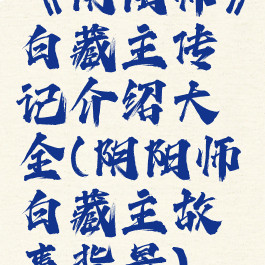 《阴阳师》
白藏主传
记介绍大
全(阴阳师
白藏主故
事背景)